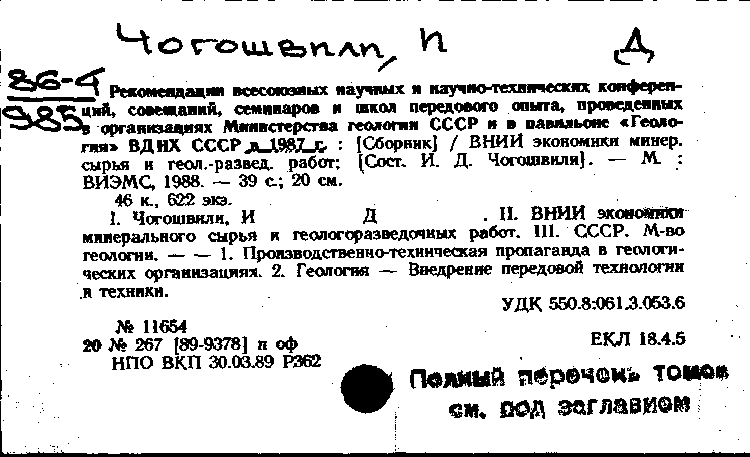 Чогошвили, И Д
86-4
985
Рекомендации всесоюзных научных и научно-технических конферен-
ций, совещаний, семинаров и школ передового опыта, проведенных
в организациях Министерства геологии СССР и в павильоне «Геоло-
гия» ВДНХ СССР в 1987 г. : [Сборник] / ВНИИ экономики минер.
сырья и геол.-развед. работ; [Сост. И. Д. Чогошвили]. — М. :
ВИЭМС, 1988. — 39 с.; 20 см.
46 к., 622 экз.
I. Чогошвили, И Д . II. ВНИИ экономики
минерального сырья и геологоразведочных работ. III. СССР. М-во
геологии. — — 1. Производственно-техническая пропаганда в геологи-
ческих организациях. 2. Геология — Внедрение передовой технологии
и техники.
УДК 550.8:061.3.053.6
№ 11654
20 № 267 [89-9378] п оф
ЕКЛ 18.4.5
НПО ВКП 30.03.89 Р362
Полный перечень томов
см. под заглавием